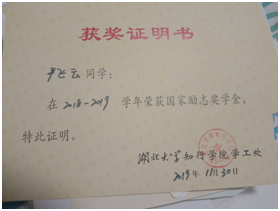 获奖证明书
尹飞云同学：
在2018-2019学年荣获国家励志奖学金，
特此证明。
湖北大学知行学院学工处
2019年11月30日